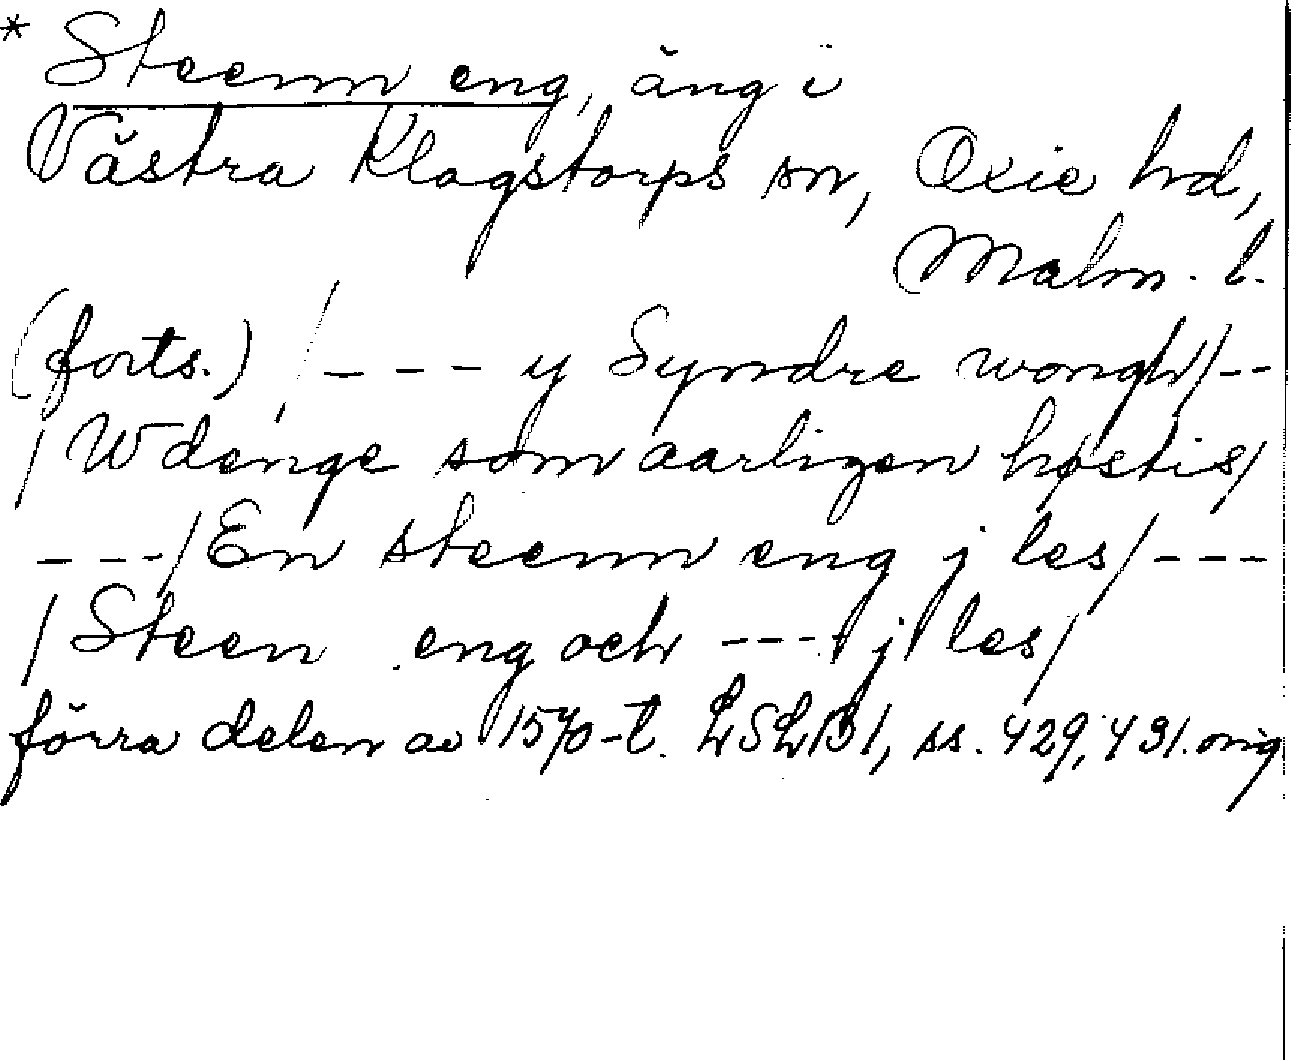 * Steenn eng, äng i
Västra Klagstorps sn, Oxie hd,
Malm. l.
(forts.) /--- y Syndre wongh/--
/Wdenge som aarligen høstis/
---/En steenn eng j les/---
/Steen eng och --- j les/
förra delen av 1570-t. LSLB1, ss. 429, 431. orig